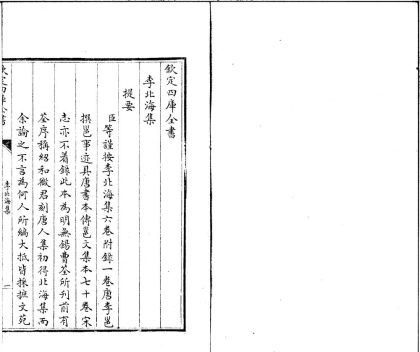 欽定四庫全書
李北海集
提要
臣等謹按李北海集六卷附錄一卷唐李邕
撰邕事迹具唐書本傳邕文集本七十卷宋
志亦不著錄此本為明無錫曹荃所刊前有
荃序稱紹和徵君刻唐人集初得北海集而
余論之不言為何人所編大抵皆採摭文苑
李北海集